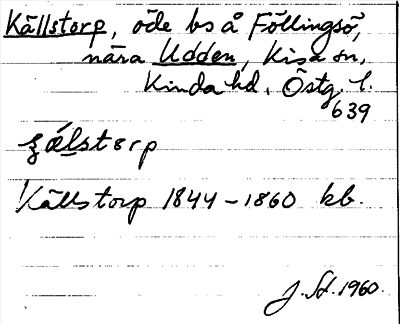 Källstorp, öde bs å Föllingsö,
nära Udden, Kisa sn,
Kinda hd, Östg. l.
639
Källstorp 1844-1860 kb.
1960.